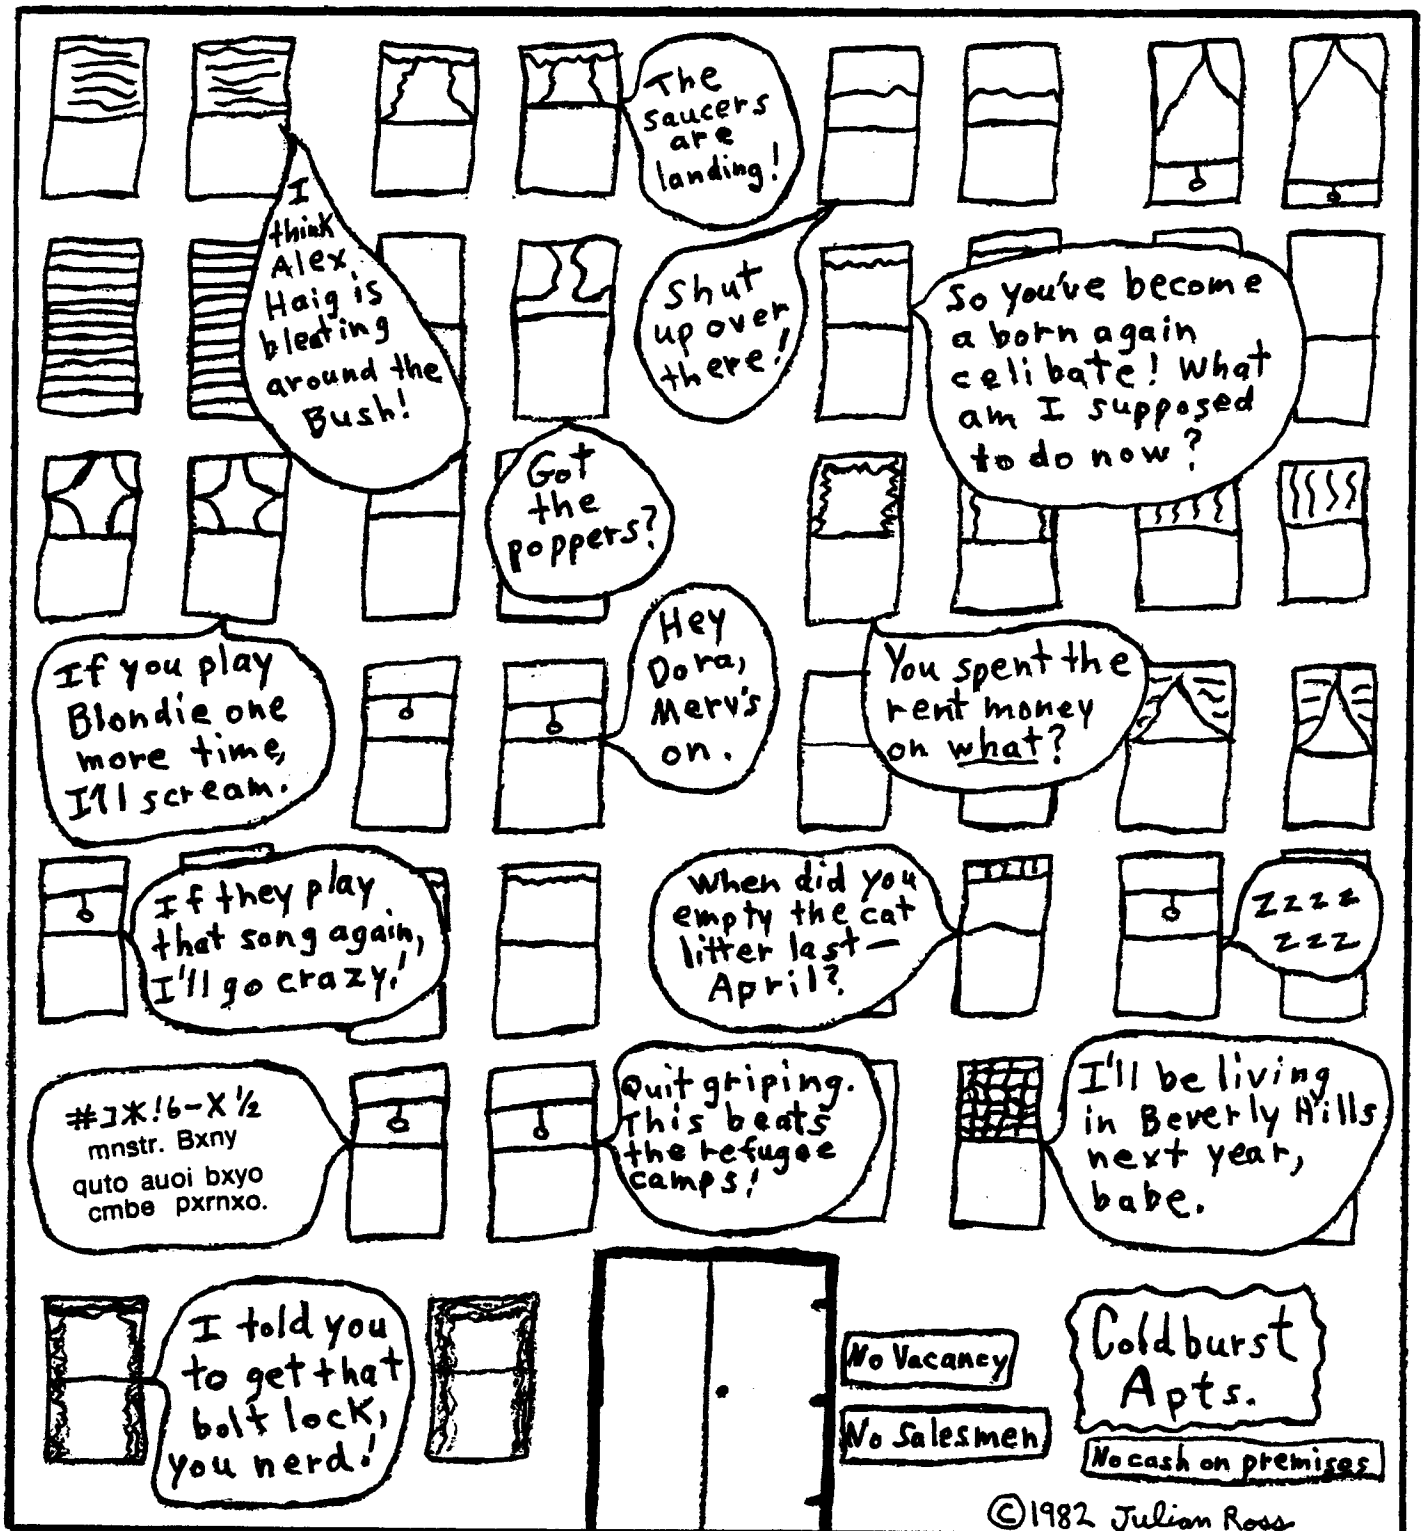 The
saucers
are
landing!
I
think
Alex
Haig is
bleating
around the
Bush!
Shut
up over
there!
So you've become
a born again
celibate! What
am I supposed
to do now?
Got
the
poppers?
If you play
Blondie one
more time,
I'll scream.
Hey
Dora,
Merv's
on.
You spent the
rent money
on what?
If they play
that song again,
I'll go crazy!
When did you
empty the cat
litter last—
April?
Zzzz
zzz
#コ*!6-X ½
mnstr. Bxny
quto auoi bxyo
cmbe pxrnxo.
Quit griping.
This beats
the refugee
camps!
I'll be living
in Beverly Hills
next year,
babe.
I told you
to get that
bolt lock,
you nerd!
No Vacancy
No Salesmen
Coldburst
Apts.
No cash on premises
©1982 Julian Ross